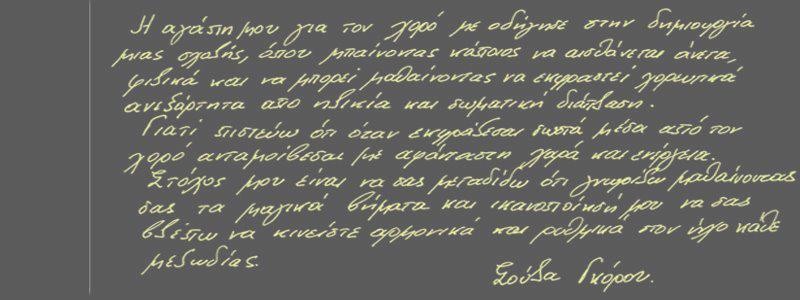 Η αγάπη μου για τον χορό με οδήγησε στην δημιουργία
μιας σχολής, όπου μπαίνοντας κάποιος να αισθάνεται άνετα,
φιλικά και να μπορεί μαθαίνοντας να εκφραστεί χορευτικά
ανεξάρτητα απο ηλικία και σωματική διάπλαση.
Γιατί πιστεύω ότι όταν εκφράζεσαι σωστά μέσα από τον
χορό ανταμοίβεσαι με αφάνταστη χαρά και ενέργεια.
Στόχος μου είναι να σας μεταδίδω ότι γνωρίζω μαθαίνοντας
σας τα μαγικά βήματα και ικανοποίησή μου να σας
βλέπω να κινείστε αρμονικά και ρυθμικά στον ήχο κάθε
μελωδίας.
Σούλα Γκόρου.